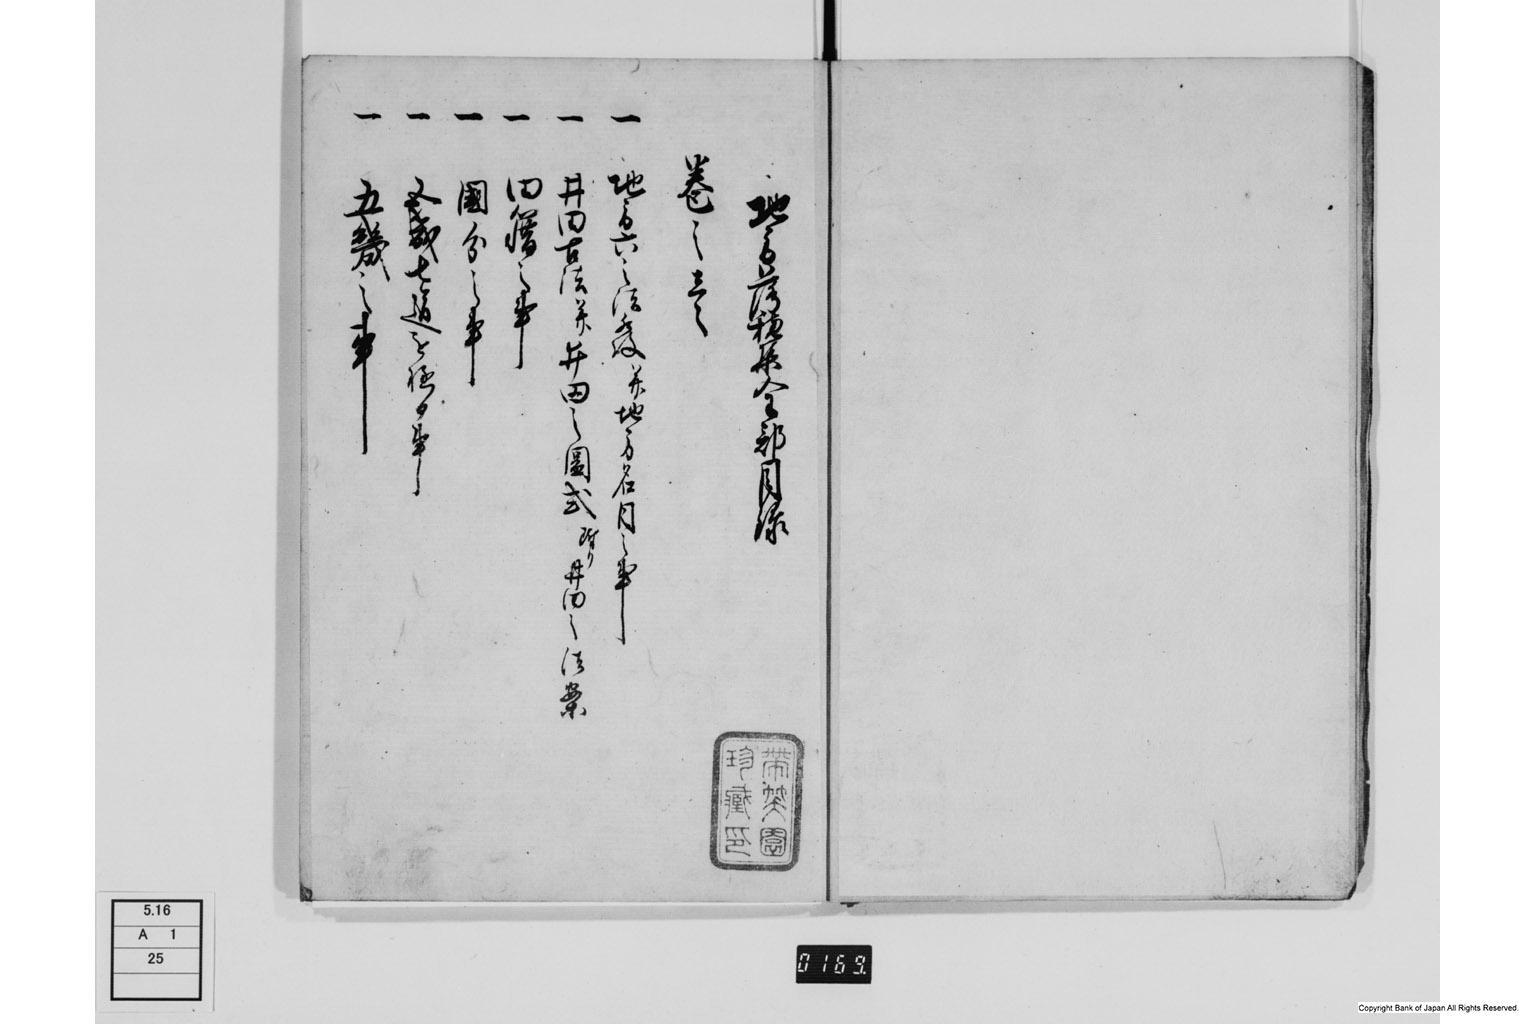 地方落穂集全部目録
巻之壱
一 地方六之法度并地方名目之事
一 井田古法并井田之圖式 附り井田之法案
一 田籍之事
一 國分之事
一 七道を極ル事
一 五畿之事
帯笑園
珍藏印
5.16
A 1
25
0169
Copyright Bank of Japan All Rights Reserved.